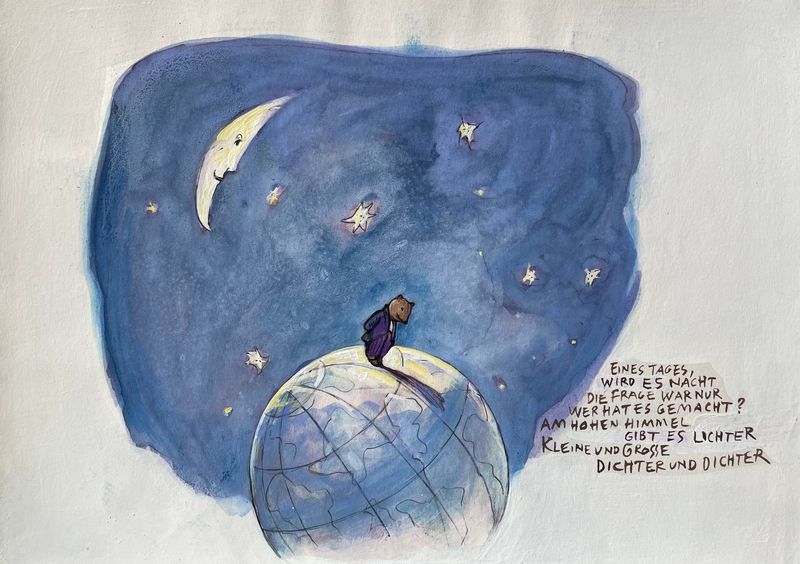 EINES TAGES,
WIRD ES NACHT
DIE FRAGE WAR NUR
WER HAT ES GEMACHT?
AM HOHEN HIMMEL
GIBT ES LICHTER
KLEINE UND GROSSE
DICHTER UND DICHTER